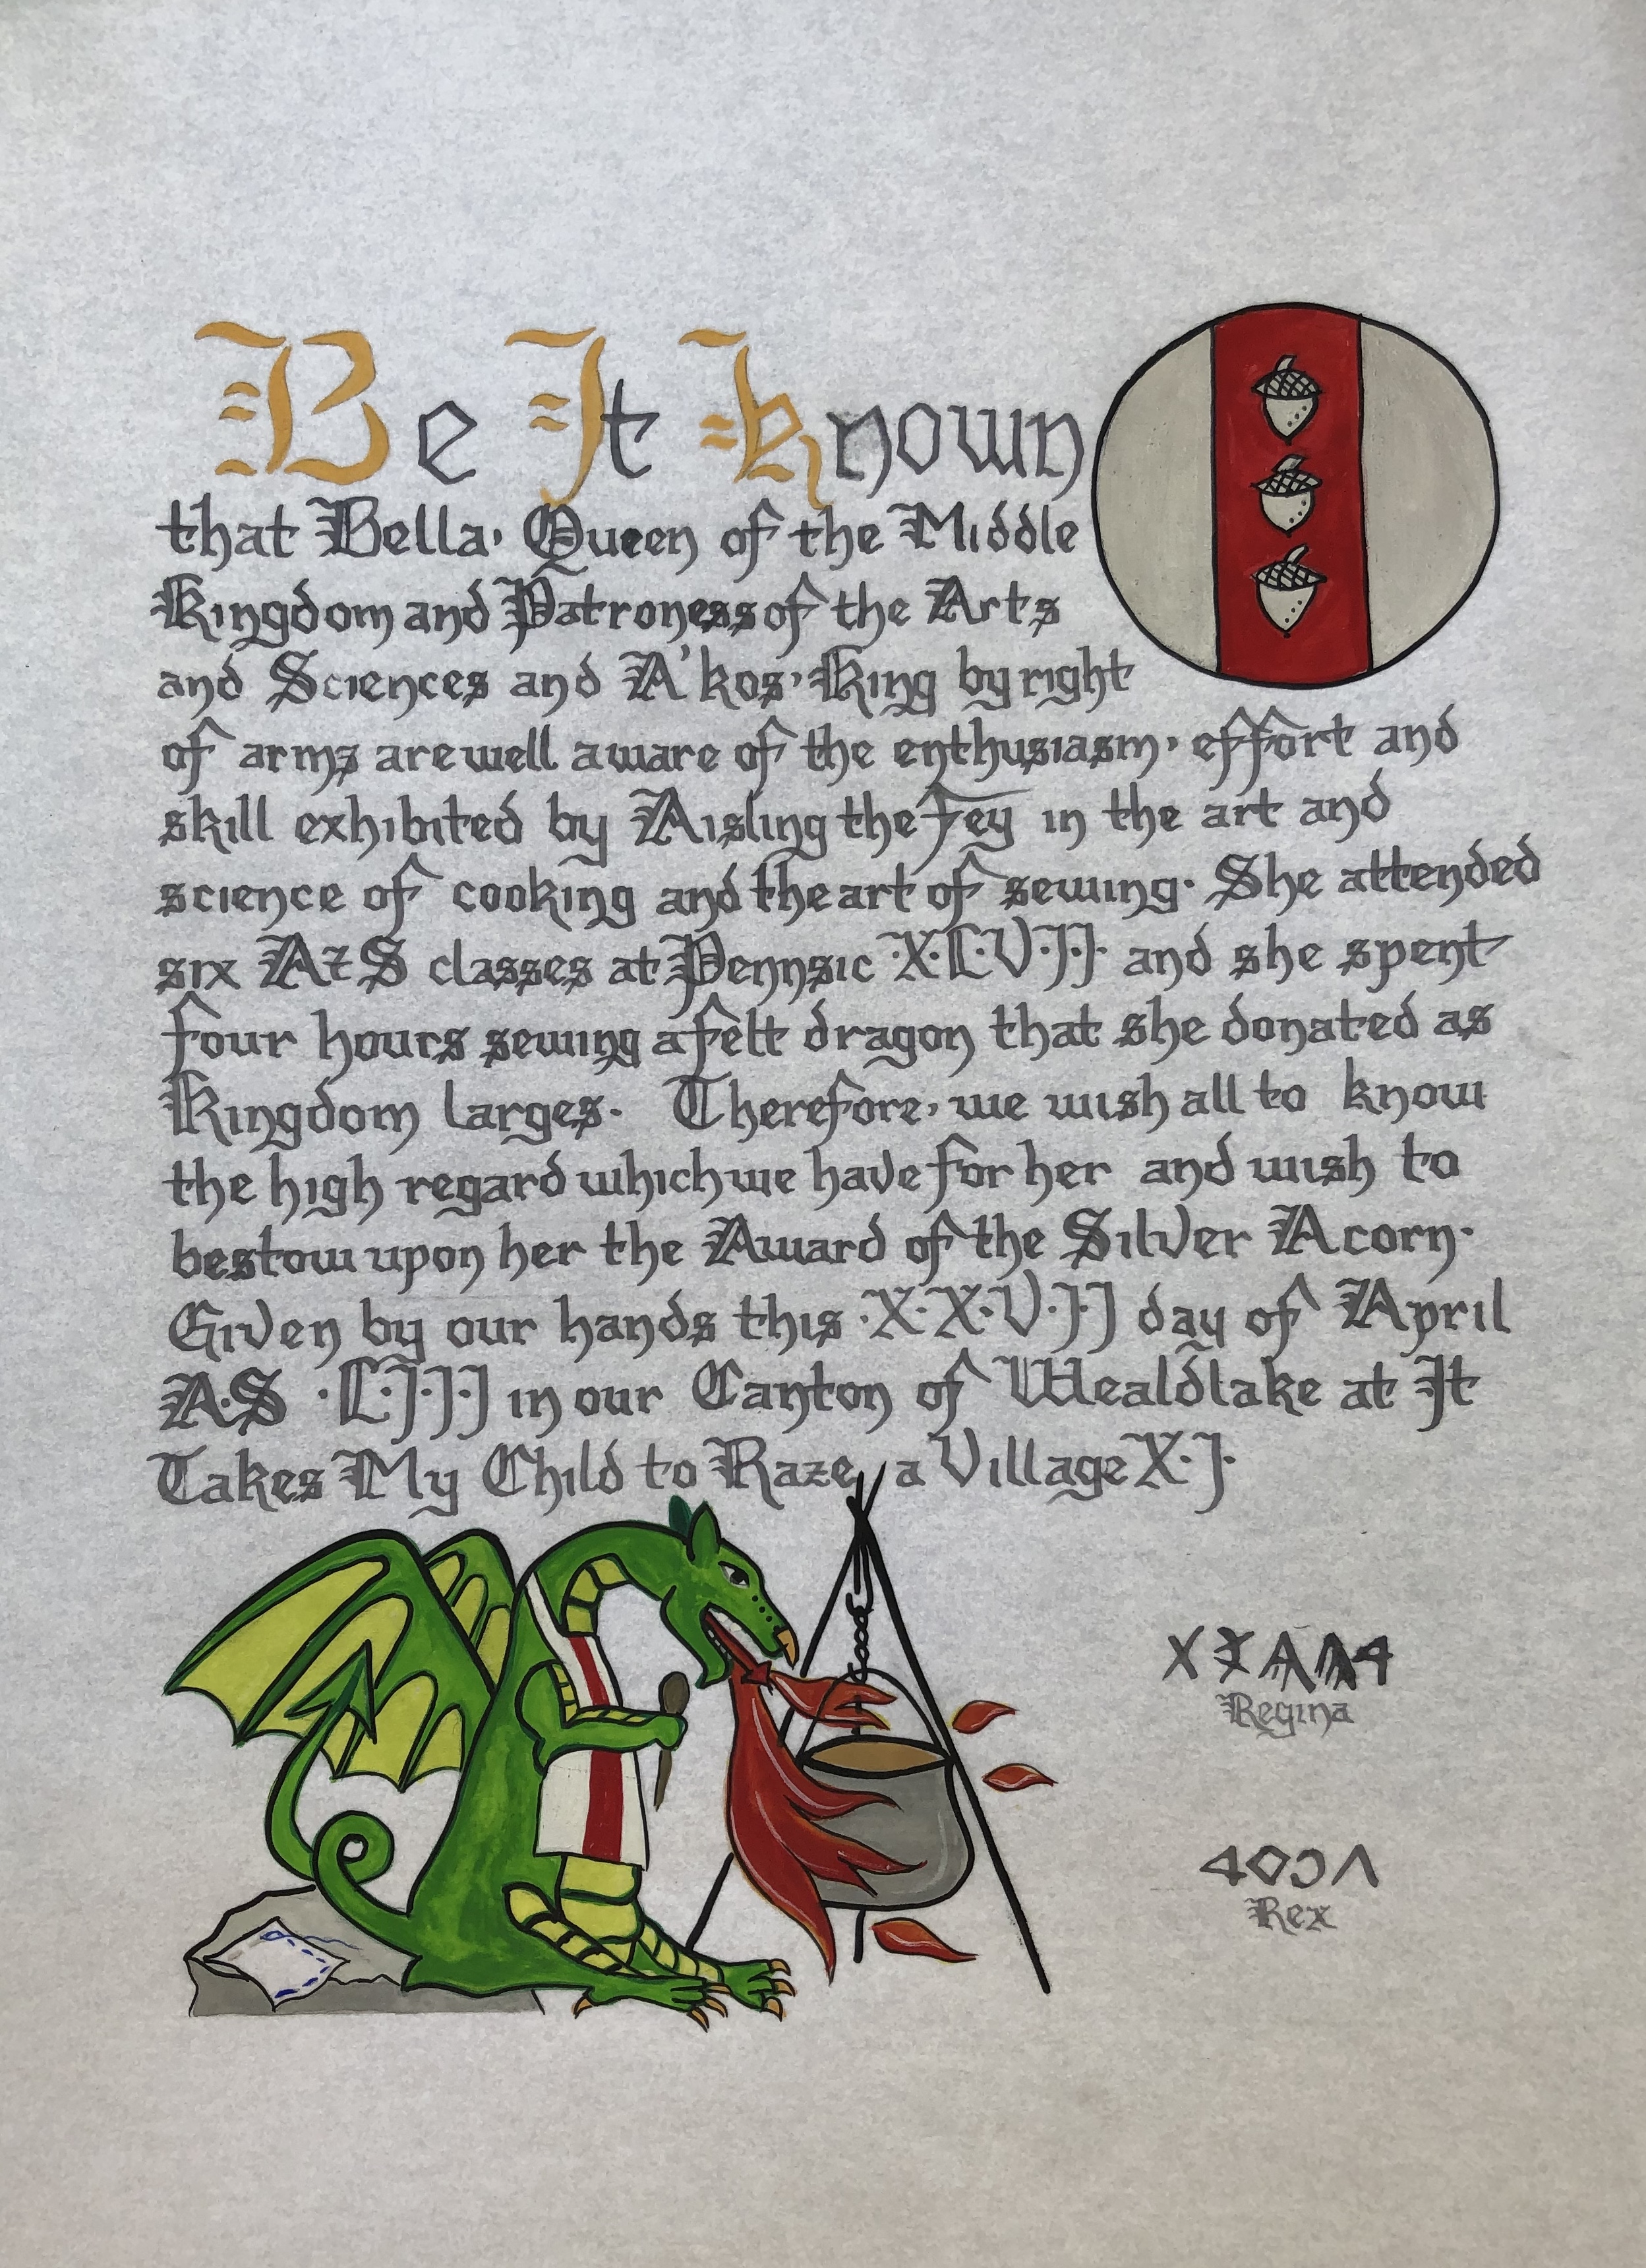 Be It Known
that Bella, Queen of the Middle
Kingdom and Patroness of the Arts
and Sciences and A'kos, King by right
of arms are well aware of the enthusiasm, effort and
skill exhibited by Aisling the Fey in the art and
science of cooking and the art of sewing. She attended
six A&S classes at Pennsic ·X·L·V·I·I· and she spent
four hours sewing a felt dragon that she donated as
Kingdom larges. Therefore, we wish all to know
the high regard which we have for her and wish to
bestow upon her the Award of the Silver Acorn.
Given by our hands this ·X·X·V·I·I day of April
A.S ·L·I·I·I in our Canton of Wealdlake at It
Takes My Child to Raze a Village X·I·
Regina
Rex